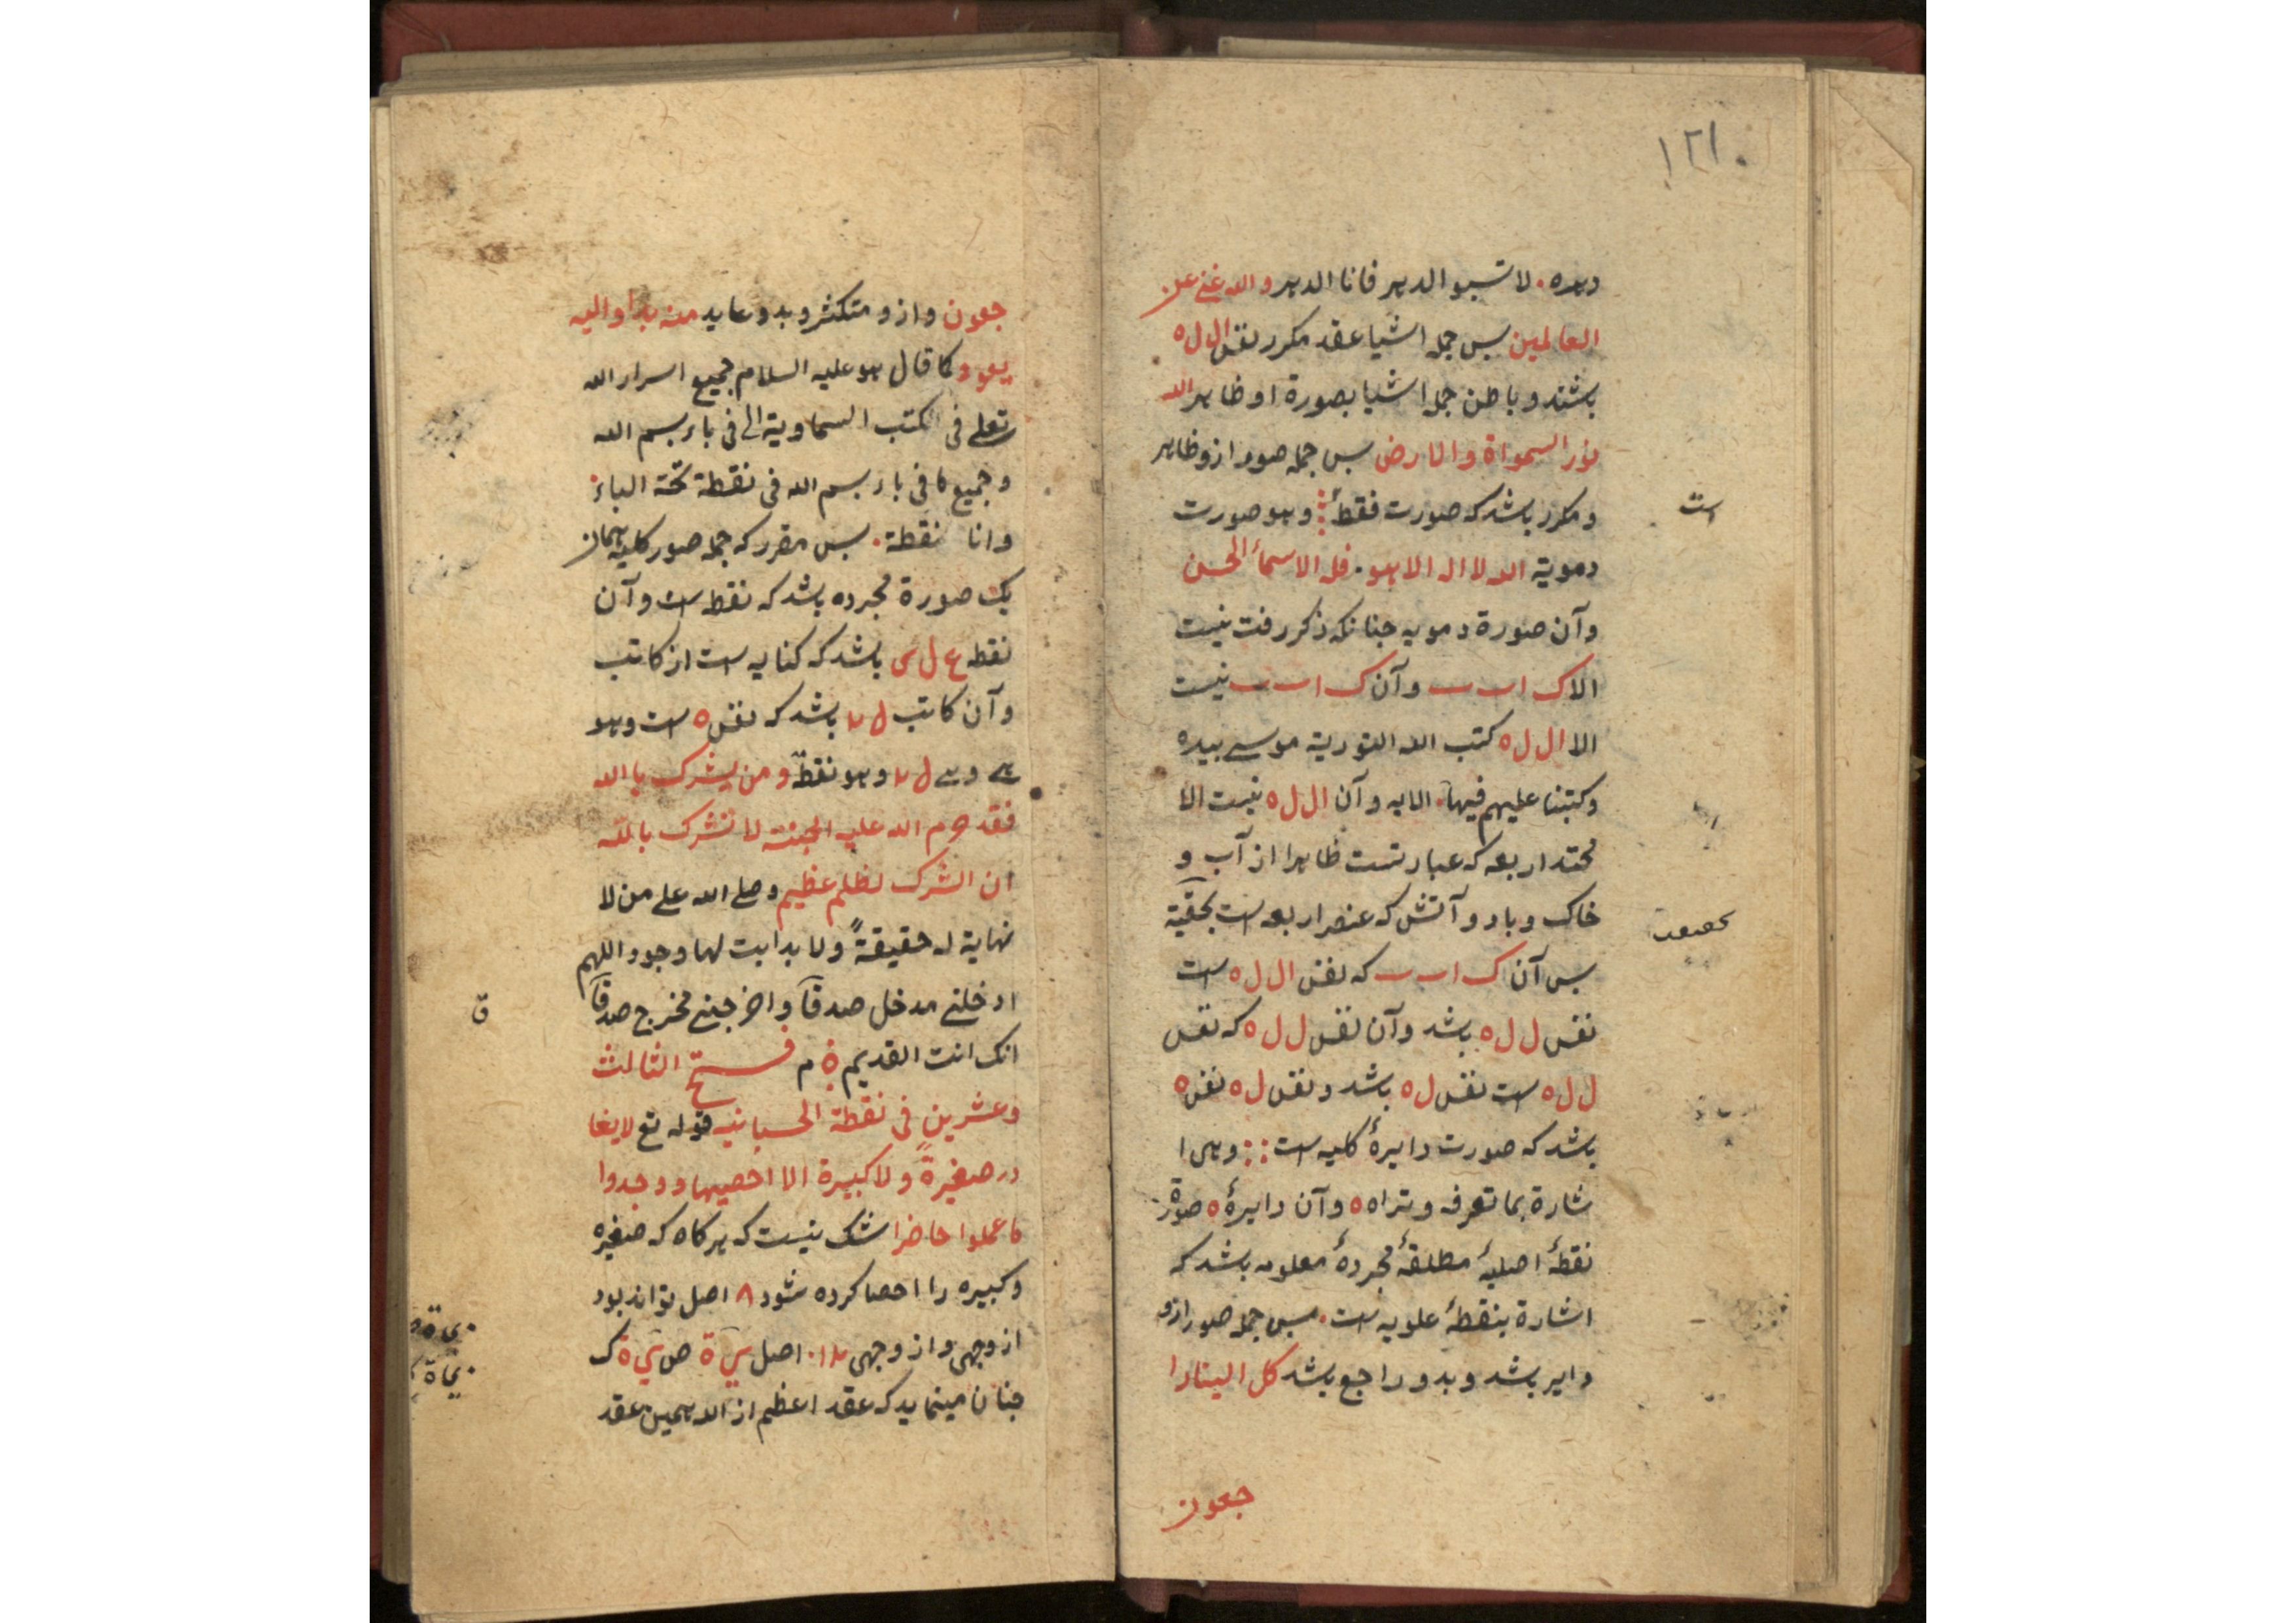 ۱۲۱۰
دهره . لا تسبوا الدهر فانا الدهر والله غنی عن
العالمین پس جمله اشیا عقد مکرر نفس ا ل ل ه
باشند و باطن جمله اشیا بصورة او ظاهر الله
نور السمواة والارض پس جمله صور ازو ظاهر
و مکرر باشد که صورت فقطهٔ وهو صورت
است
دمویة الله لا اله الا هو . فله الاسمأ الحسن
و آن صورة دمویه جنانکه ذکر رفت نیست
الا ک ا ب و آن ک ا ب نیست
الا ا ل ل ه کتب الله التوریة موسی بیده
وکتبنا علیهم فیها . الایه و آن ا ل ل ه نیست الا
محتد اربعه که عبارتست ظاهرا از آب و
خاک و باد و آتش که عنصر اربعه است بحقیة
پس آن ک ا ب که نفس ا ل ل ه است
نفس ل ل ه باشد و آن نفس ل ل ه که نفس
ل ل ه است نفس ل ه باشد و نفس ل ه نفس ه
باشد که صورت دایرهٔ کلیه است وهی ا
شارة بما تعرفه و تراه ه و آن دایرهٔ ه صورة
نقطهٔ اصلیهٔ مطلقهٔ مجردهٔ معلومه باشد که
اشارة بنقطهٔ علویه است . پس جمله صور ازو
دایر باشد و بدو راجع باشد کل الینا را
جعون
جعون و ازو متکثر و بدو عاید منه بدا والیه
یعود کما قال هو علیه السلام جمیع اسرار الله
تعلی فی الکتب السماویة الی فی باء بسم الله
و جمیع ما فی باء بسم الله فی نقطة تحته الباء
وانا نقطة . پس مقرر که جمله صور کلیه همان
یک صورة مجرده باشد که نقطه است و آن
نقطه ع ل ی باشد که کنایه است از کاتب
و آن کاتب ل باشد که نفس ه است وهو
وهو نقطة ومن یشرک باالله
فقد حرم الله علیه الجنة لا تشرک بالله
ان الشرک لظلم عظیم وصلی الله علی من لا
نهایة له حقیقةً ولا بدایت لها وجود اللهم
ادخلنی مدخل صدقاً واخرجنی مخرج صدقاً
ق
انک انت القدیم م فتح الثالث
وعشرین فی نقطة الحسبانیه قوله تع لا یغا
در صغیرةً ولا کبیرة الا احصیها ووجدوا
ما عملوا حاضرا شک نیست که هرکاه که صغیره
و کبیره را احصا کرده شود ۸ اصل تواند بود
از وجهی و از وجهی اصل
جنان مینماید که عقد اعظم از الله همین عقد